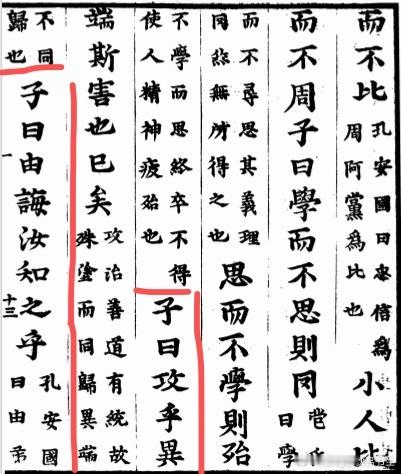 而不比孔安國曰忠信為周阿黨為比也小人比
而不周子曰學而不思則罔苞氏曰學
而不尋思其義理罔然無所得之也思而不學則殆
不學而思終卒不得使人精神疲殆也子曰攻乎異
端斯害也已矣攻治善道有統故殊塗而同歸異端
不同歸也子曰由誨汝知之乎孔安國曰由弟
一
十三